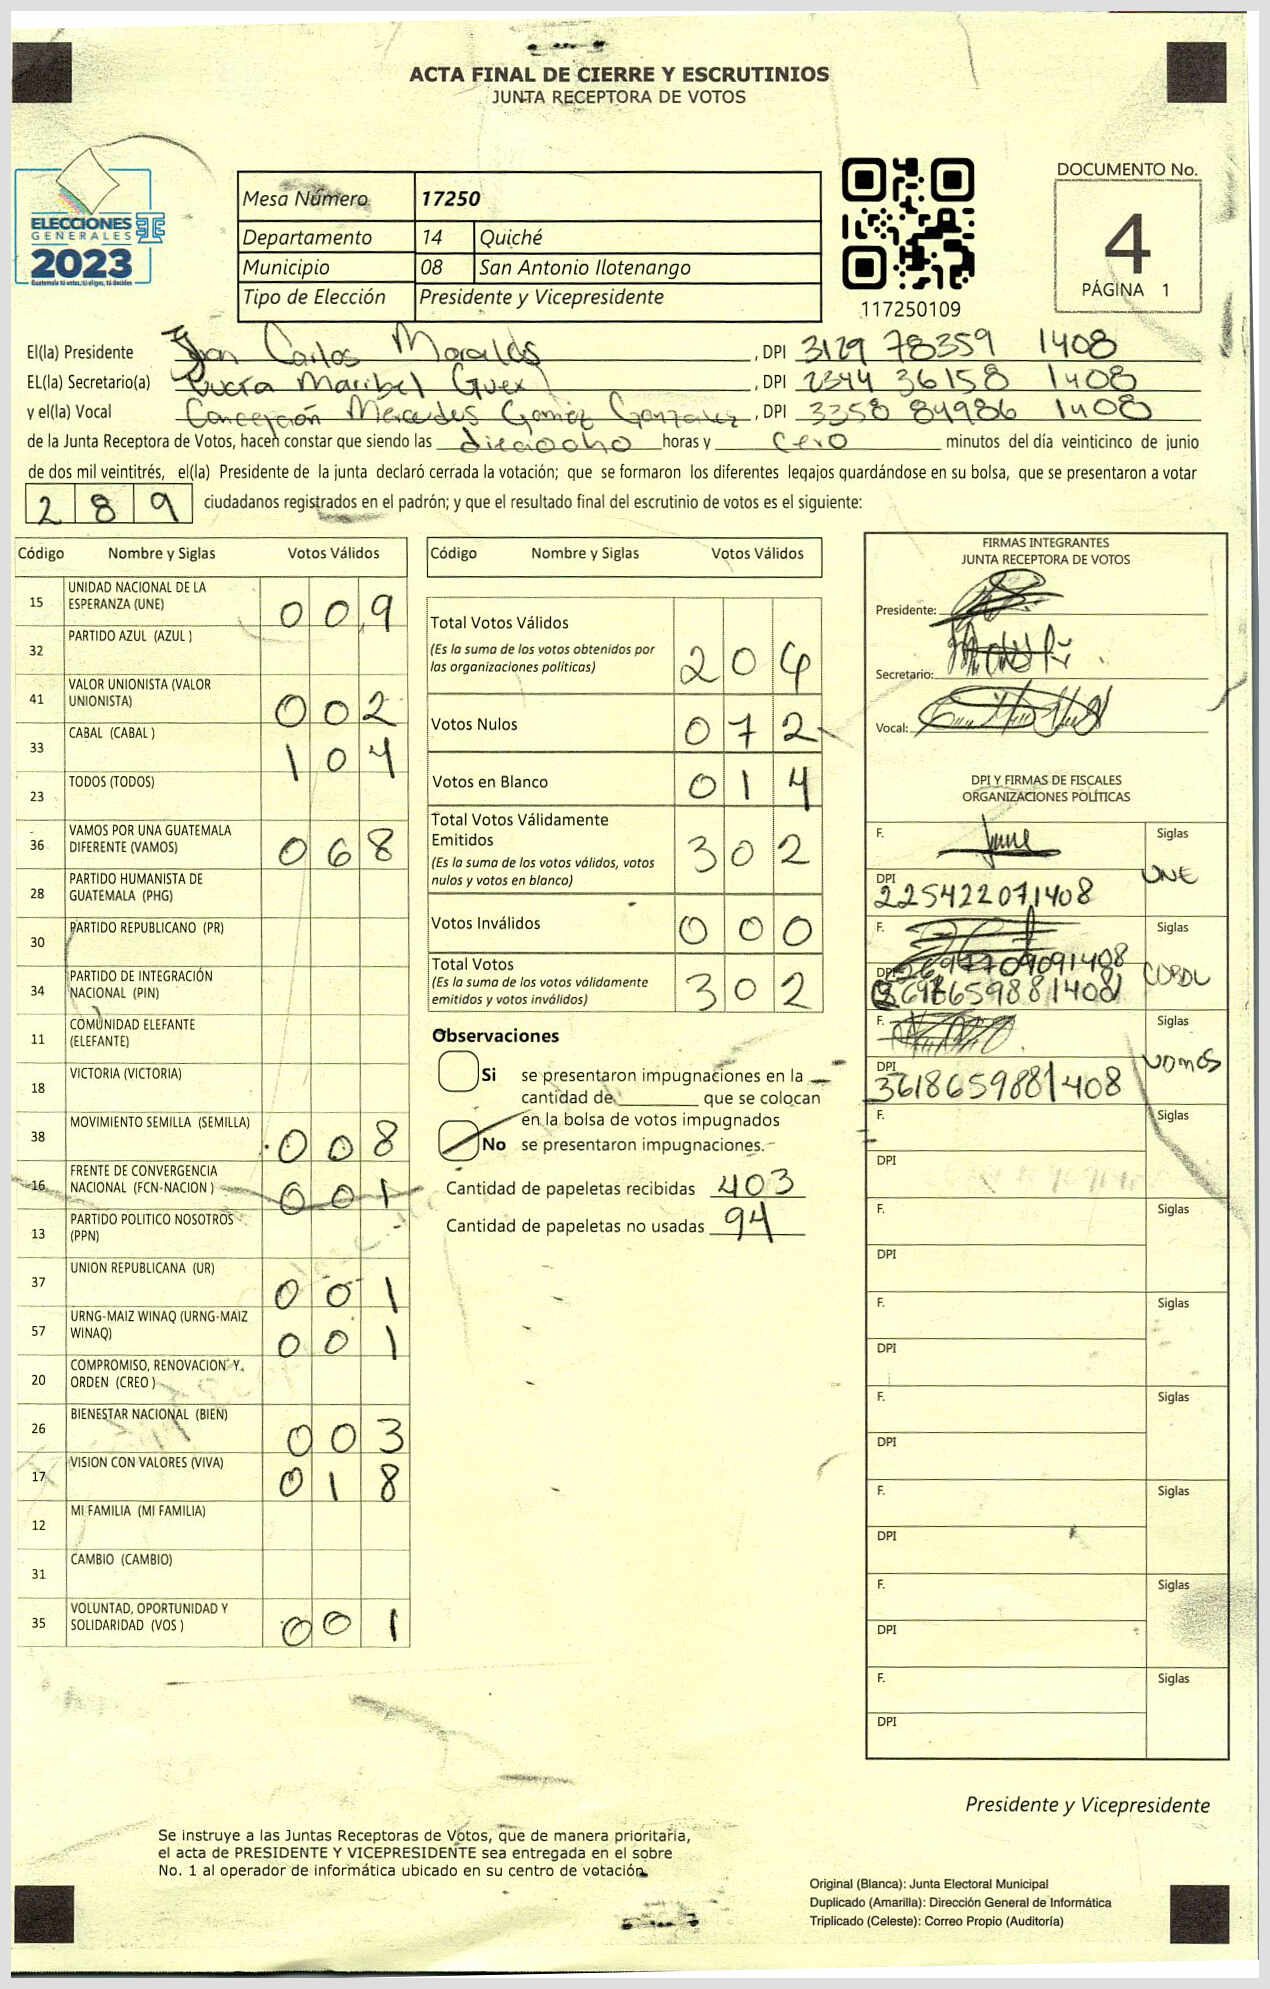 ACTA FINAL DE CIERRE Y ESCRUTINIOS
JUNTA RECEPTORA DE VOTOS
ELECCIONES
GENERALES
2023
Guatemala tú votas, tú eliges, tú decides
Mesa Número 17250
Departamento 14 Quiché
Municipio 08 San Antonio Ilotenango
Tipo de Elección Presidente y Vicepresidente
117250109
DOCUMENTO No.
4
PÁGINA 1
El(la) Presidente Juan Carlos Morales, DPI 3129 78359 1408
EL(la) Secretario(a) Maribel, DPI 2344 36158 1408
y el(la) Vocal Concepción Mercedes Gomez Gonzalez, DPI 3358 84986 1408
de la Junta Receptora de Votos, hacen constar que siendo las dieciocho horas y cero minutos del día veinticinco de junio
de dos mil veintitrés, el(la) Presidente de la junta declaró cerrada la votación; que se formaron los diferentes legajos guardándose en su bolsa, que se presentaron a votar
289 ciudadanos registrados en el padrón; y que el resultado final del escrutinio de votos es el siguiente:
Código Nombre y Siglas Votos Válidos
15 UNIDAD NACIONAL DE LA ESPERANZA (UNE) 009
32 PARTIDO AZUL (AZUL )
41 VALOR UNIONISTA (VALOR UNIONISTA) 002
33 CABAL (CABAL ) 104
23 TODOS (TODOS)
36 VAMOS POR UNA GUATEMALA DIFERENTE (VAMOS) 068
28 PARTIDO HUMANISTA DE GUATEMALA (PHG)
30 PARTIDO REPUBLICANO (PR)
34 PARTIDO DE INTEGRACIÓN NACIONAL (PIN)
11 COMUNIDAD ELEFANTE (ELEFANTE)
18 VICTORIA (VICTORIA)
38 MOVIMIENTO SEMILLA (SEMILLA) 008
16 FRENTE DE CONVERGENCIA NACIONAL (FCN-NACION ) 001
13 PARTIDO POLITICO NOSOTROS (PPN)
37 UNION REPUBLICANA (UR) 001
57 URNG-MAIZ WINAQ (URNG-MAIZ WINAQ) 001
20 COMPROMISO, RENOVACION Y ORDEN (CREO )
26 BIENESTAR NACIONAL (BIEN) 003
17 VISION CON VALORES (VIVA) 018
12 MI FAMILIA (MI FAMILIA)
31 CAMBIO (CAMBIO)
35 VOLUNTAD, OPORTUNIDAD Y SOLIDARIDAD (VOS ) 001
Código Nombre y Siglas Votos Válidos
Total Votos Válidos 204
(Es la suma de los votos obtenidos por
las organizaciones políticas)
Votos Nulos 072
Votos en Blanco 014
Total Votos Válidamente
Emitidos 302
(Es la suma de los votos válidos, votos
nulos y votos en blanco)
Votos Inválidos 000
Total Votos 302
(Es la suma de los votos válidamente
emitidos y votos inválidos)
Observaciones
Si se presentaron impugnaciones en la
cantidad de que se colocan
en la bolsa de votos impugnados
No se presentaron impugnaciones.
Cantidad de papeletas recibidas 403
Cantidad de papeletas no usadas 94
FIRMAS INTEGRANTES
JUNTA RECEPTORA DE VOTOS
Presidente:
Secretario:
Vocal:
DPI Y FIRMAS DE FISCALES
ORGANIZACIONES POLÍTICAS
F. Siglas
DPI UNE
F. Siglas
DPI
F. Siglas
DPI 3618659881408 VOMOS
F. Siglas
DPI
F. Siglas
DPI
F. Siglas
DPI
F. Siglas
DPI
F. Siglas
DPI
F. Siglas
DPI
F. Siglas
DPI
Presidente y Vicepresidente
Se instruye a las Juntas Receptoras de Votos, que de manera prioritaria,
el acta de PRESIDENTE Y VICEPRESIDENTE sea entregada en el sobre
No. 1 al operador de informática ubicado en su centro de votación.
Original (Blanca): Junta Electoral Municipal
Duplicado (Amarilla): Dirección General de Informática
Triplicado (Celeste): Correo Propio (Auditoría)